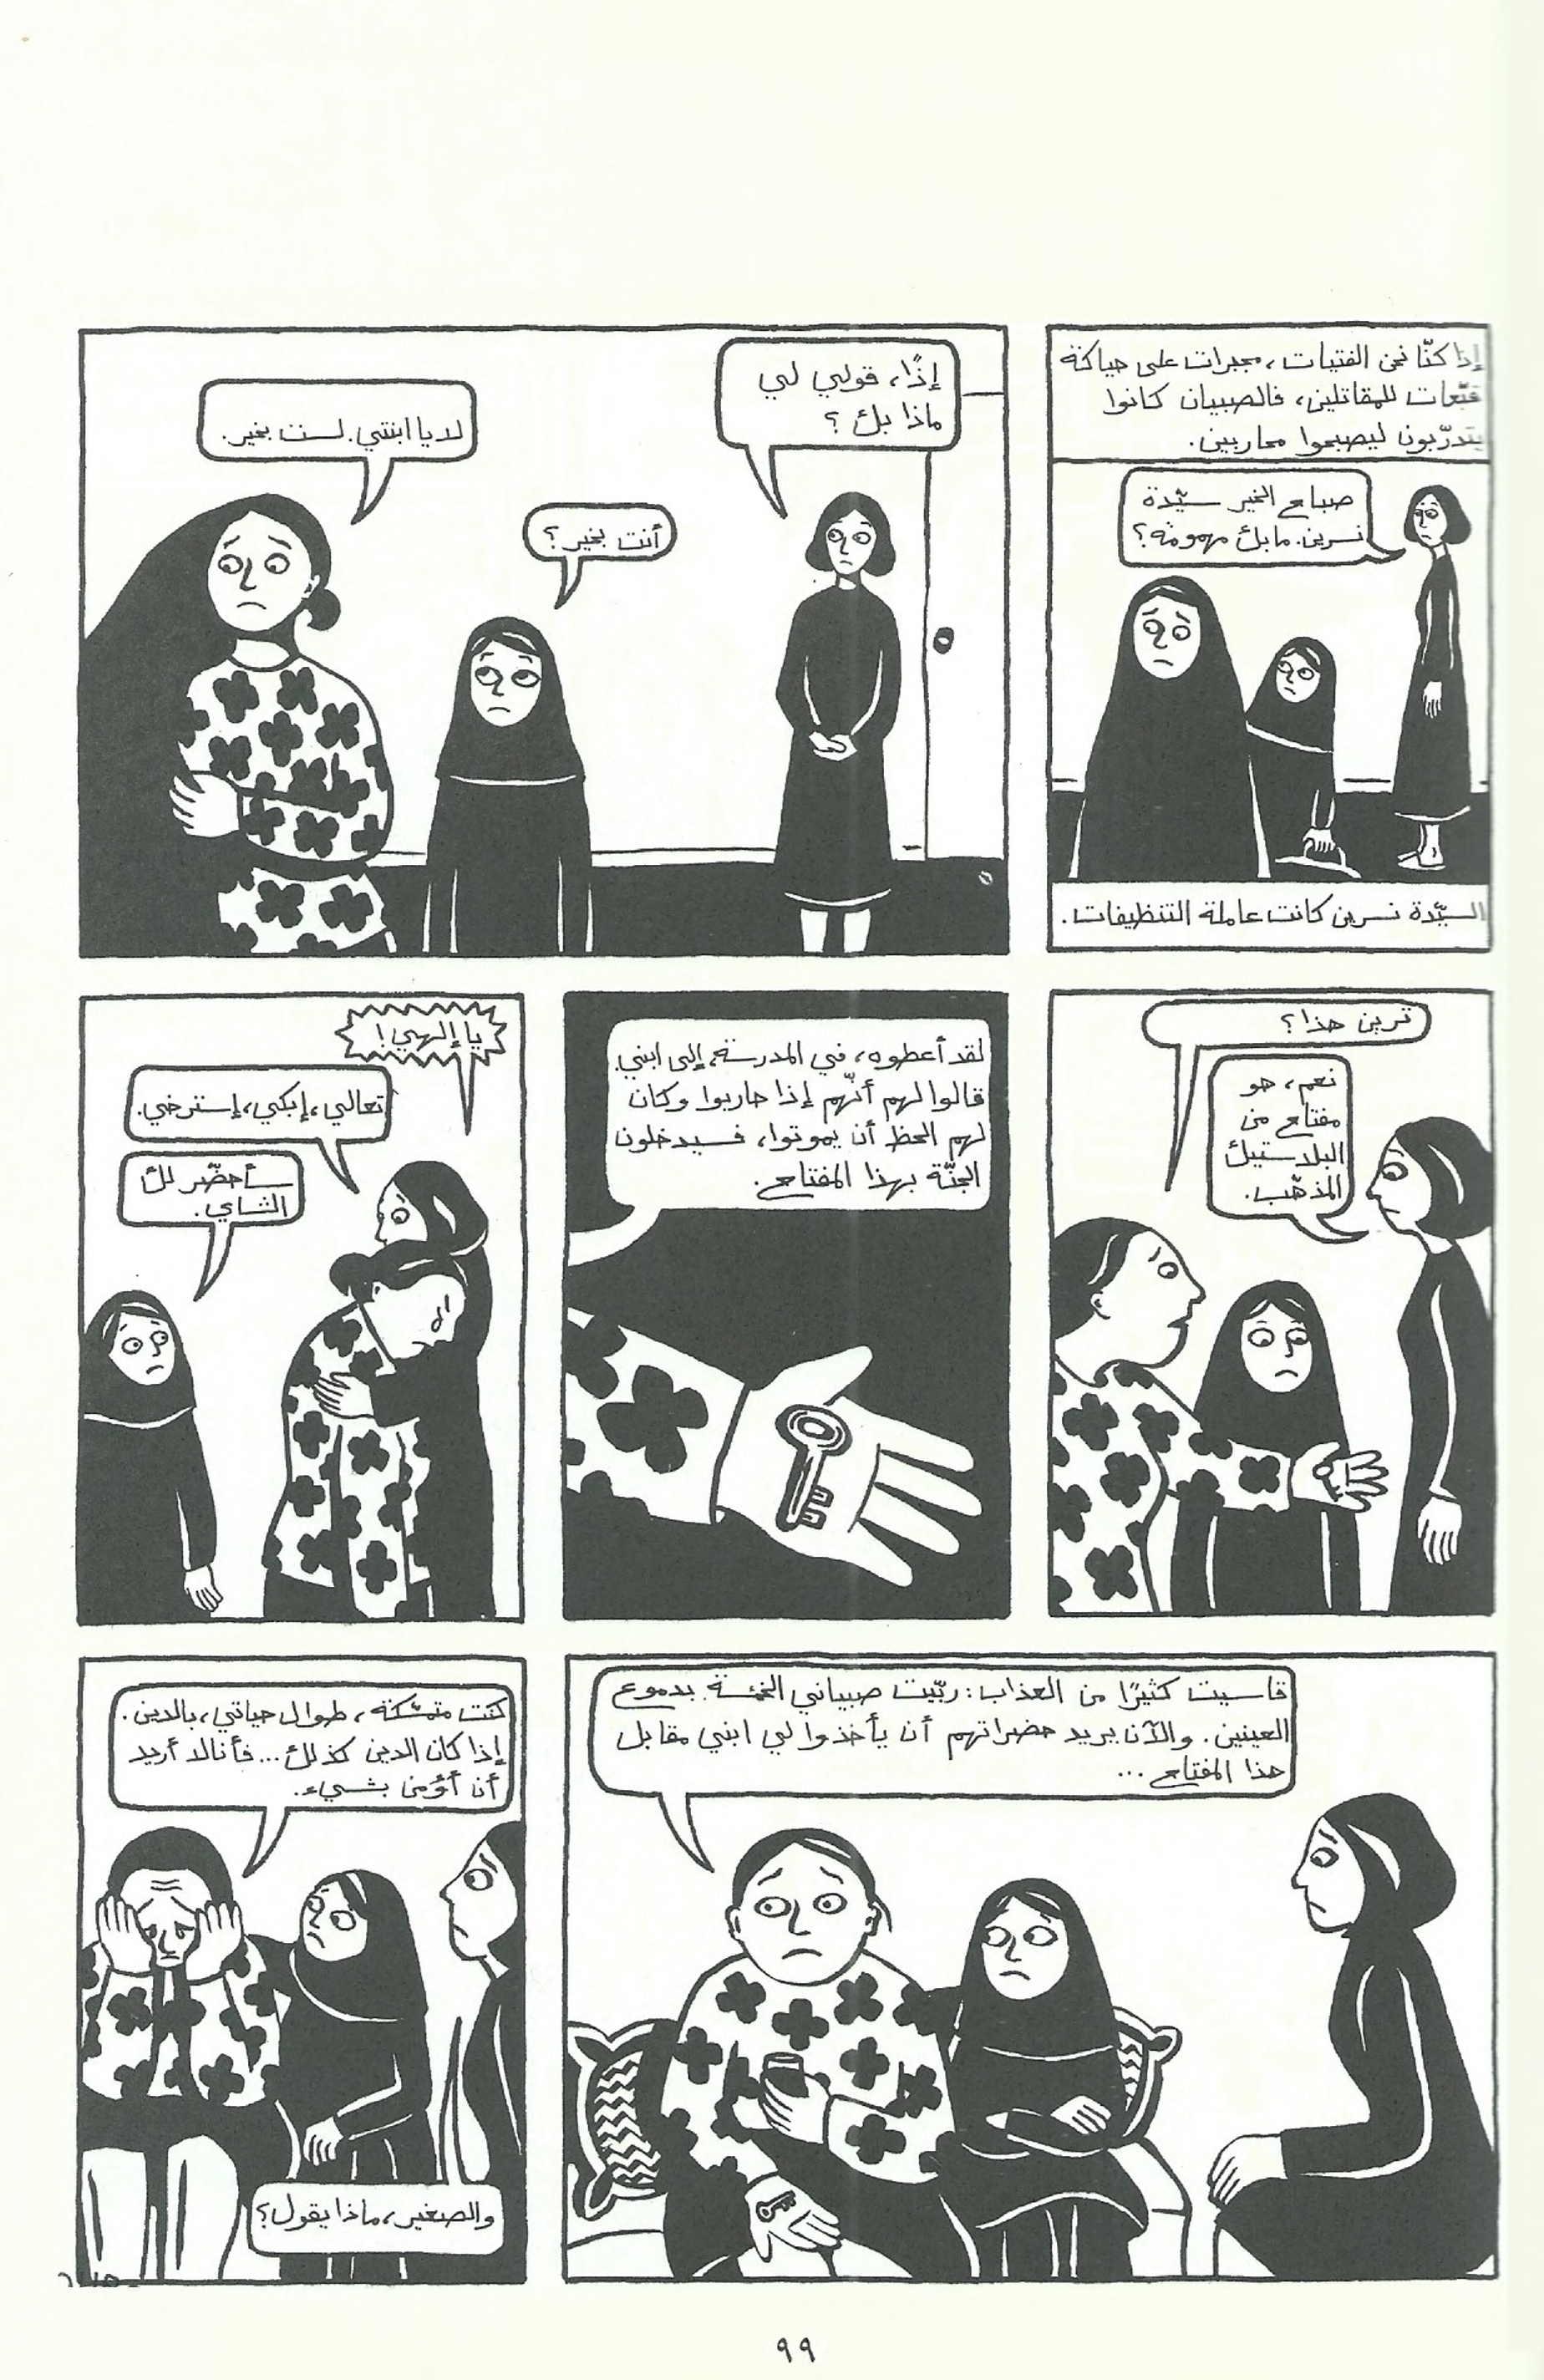 إذا كنّا نحن الفتيات، مجبرات على حياكة
قبّعات للمقاتلين، فالصبيان كانوا
يتدرّبون ليصبحوا محاربين.
صباح الخير سيّدة
نسرين. ما بك مهمومة؟
السيّدة نسرين كانت عاملة التنظيفات.
إذًا، قولي لي
ماذا بك؟
أنت بخير؟
لا يا ابنتي. لست بخير.
ترين هذا؟
نعم، هو
مفتاح من
البلاستيك
المذهّب.
لقد أعطوه، في المدرسة، إلى ابني.
قالوا لهم أنّهم إذا حاربوا وكان
لهم الحظ أن يموتوا، فسيدخلون
الجنّة بهذا المفتاح.
يا إلهي!
تعالي، إبكي، إسترخي.
سأحضّر لك
الشاي.
قاسيت كثيرًا من العذاب: ربّيت صبياني الخمسة بدموع
العينين. والآن يريد حضراتهم أن يأخذوا لي ابني مقابل
هذا المفتاح ...
كنت متمسّكة، طوال حياتي، بالدين.
إذا كان الدين كذلك... فأنا لا أريد
أن أؤمن بشيء.
والصغير، ماذا يقول؟
٩٩